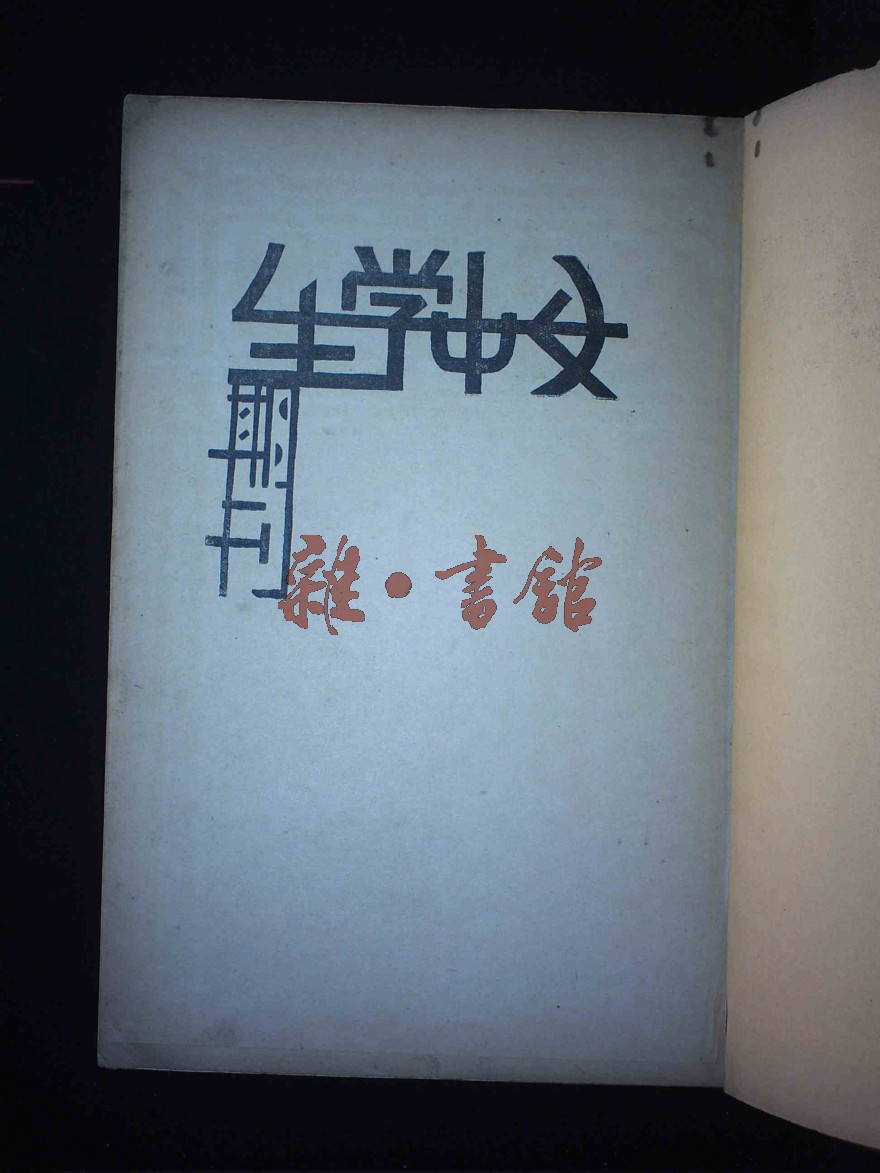 女中学生
刊
雜·書館